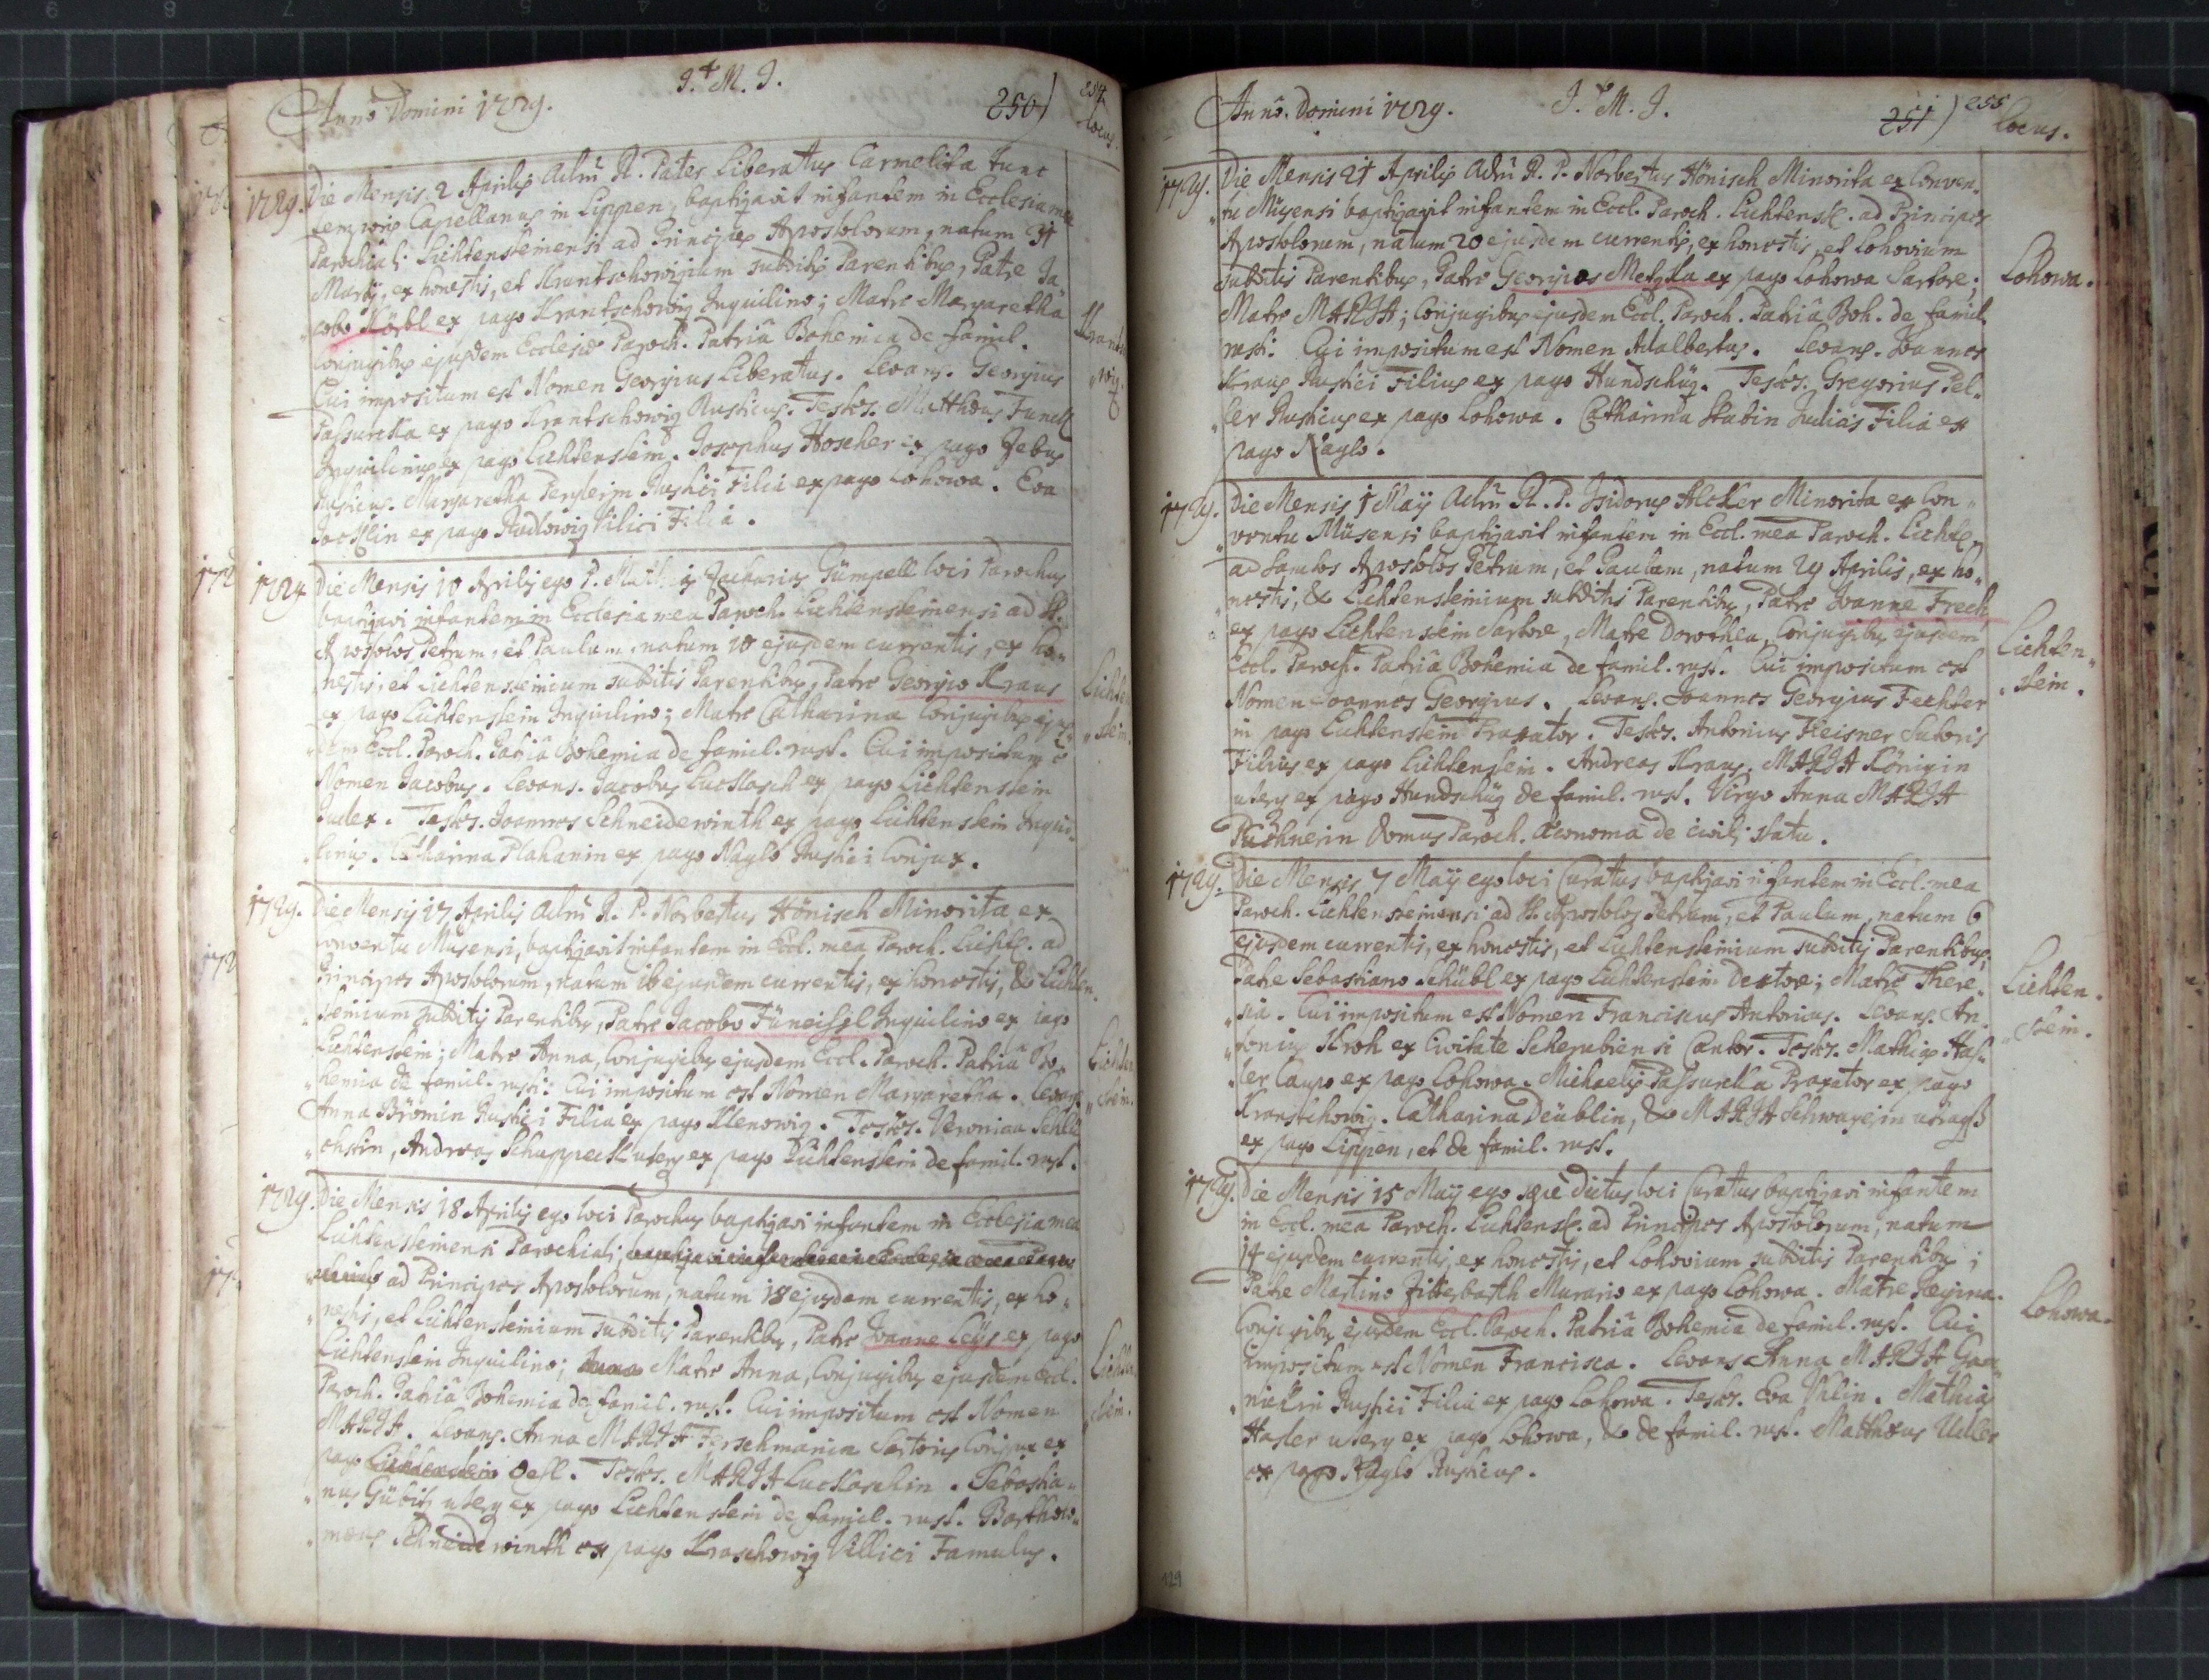 Anno Domini 1729.
J. M. J.
250) 254
locus.
1729. Die Mensis 2 Aprilis Adm̄ R. Pater Liberattus Carmelita tunc
temporis Capellanus in Lippen, baptizavit infantem in Ecclesia mea
Parochiali Lichtensteinensi ad Principes Apostolorum, natum 31
Martij, ex honestis, et Krantschowizium subditis Parentibus, Patre Ja„
„cobo Körbl ex pago Krantschowiz Inquilino; Matre Margaretha
Conjugibus ejusdem Ecclesiæ Paroch. Patriâ Bohemica de famil.
Cui impositum est Nomen Georgius Liberatus. Levans. Georgius
Passurcka ex pago Krantschowiz Rusticus. Testes. Matthæus Funck
Inquilinus ex pago Lichtenstein. Josephus Hoscher ex pago Zebus
Rusticus. Margaretha Rustici Filia ex pago Lohowa. Eva
Jacklin ex pago Rudlowiz Vilici Filia.
Krantscho„
„wiz.
1729 Die Mensis 10 Aprilis ego P. Mathias Zacharias Gümpell loci Parochus
baptizavi infantem in Ecclesia mea Paroch. Lichtensteinensi ad SS.
Apostolos Petrum, et Paulum, natum 10 ejusdem currentis, ex ho„
„nestis, et Lichtensteinium subditis Parentibus, Patre Georgio Kraus
ex pago Lichtenstein Inquilino; Matre Catharina Conjugibus ejus„
„dem Eccl. Paroch. Patriâ Bohemia de famil. rust. Cui impositum ē
Nomen Jacobus. Levans. Jacobus Lucklasch ex pago Lichtenstein
Judex. Testes. Joannes Schneiderwinth ex pago Lichtenstein Inqui„
„linus. Catharina Plahanin ex pago Naglo Rustici Conjux.
Lichten„
„stein.
1729. Die Mensis 17 Aprilis Adm̄ R. P. Norbertus Hönisch Minorita ex
Conventu Misensi, baptizavit infantem in Eccl. mea Paroch. Lichtst. ad
Principes Apostolorum, natum 16 ejusdem currentis, ex honestis, & Lichten„
„steinium subditis Parentibus, Patre Jacobo Füneisel Inquilino ex pago
Lichtenstein; Matre Anna, Conjugibus ejusdem Eccl. Paroch. Patriâ Bo„
„hemia de famil. rusti: Cui impositum est Nomen Margaretha. Levans
Anna Bömin Rustici Filia ex pago Klenowiz. Testes. Veronica
Andreas Schuppeck uterq ex pago Lichtenstein de famil. rust.
Lichten„
„stein.
1729. Die Mensis 18 Aprilis ego loci Parochus baptizavi infantem in Ecclesia mea
Lichtensteinensi Parochiali,
ad Principes Apostolorum, natum 18 ejusdem currentis, ex ho„
„nestis, et Lichtensteinium subditis Parentibus, Patre Joanne Leÿs ex pago
Lichtenstein Inquilino; Anna Matre Anna, Conjugibus ejusdem Eccl.
Paroch. Patriâ Bohemia de famil. rust. Cui impositum est Nomen
MARIA. Levans. Anna MARIA Ferschmanin Sartoris Conjux ex
pago Lichtenstein Testes. MARIA Lucklaschin. Sebastia„
„nus Gübitz uterq ex pago Lichtenstein de famil. rust. Bartholo„
„mæus Schneiderwinth ex pago Kraschowiz Villici Famulus.
Lichten„
„stein.
Anno. Domini 1729.
J. M. J.
251) 255
Locus.
1729. Die Mensis 21 Aprilis Adm̄ R. P. Norbertus Hönisch Minorita ex Conven„
„tu Misensi baptizavit infantem in Eccl. Paroch. Lichtenst. ad Principes
Apostolorum, natum 20 ejusdem currentis, ex honestis, et Lohovium
subditis Parentibus, Patre Georgios Metzka ex pago Lohowa Sartore;
Matre MARIA; Conjugibus ejusdem Eccl. Paroch. Patriâ Boh. de famil.
rusti: Cui impositum est Nomen Adalbertus. Levans. Joannes
Kraus Rustici Filius ex pago Hundschüz. Testes. Gregorius Pel„
„ler Rusticus ex pago Lohowa. Catharina Stubin Judicis Filia ex
pago Naglo.
Lohowa.
1729. Die Mensis 1 Maÿ Adm̄ R. P. Isidorus Alcker Minorita ex Con„
„ventu Misensi baptizavit infantem in Eccl. mea Paroch. Lichtst.
ad Sanctos Apostolos Petrum, et Paulum, natum 29 Aprilis, ex ho„
„nestis, & Lichtensteinium subditis Parentibus, Patre Joanne Frech
ex pago Lichtenstein Sartore, Matre Dorothea, Conjugibus ejusdem
Eccl. Paroch. Patriâ Bohemia de famil. rust. Cui impositum est
Nomen Joannes Georgius. Levans. Joannes Georgius Fechter
in pago Lichtenstein Praxator. Testes. Antonius Fleisner Sutoris
Filius ex pago Lichtenstein. Andreas Kraus. MARIA Königin
uterq ex pago Hundschüz de famil. rust. Virgo Anna MARIA
Püchnerin domus Paroch. Œconoma de civili statu.
Lichten„
„stein.
1729. Die Mensis 7 Maÿ ego loci Curatus baptizavi infantem in Eccl. mea
Paroch. Lichtensteinensi ad SS. Apostolos Petrum, et Paulum, natum 6
ejusdem currentis, ex honestis, et Lichtensteinium subditis Parentibus,
Patre Sebastiano Schübl ex pago Lichtenstein Textore; Matre There„
„sia. Cui impositum est Nomen Franciscus Antonius. Levans. An„
„tonius Kroh ex Civitate Scherubiensi Cantor. Testes. Mathias Has„
„ler Caupo ex pago Lohowa. Michaelis Passurcka Praxator ex pago
Krantschowiz. Catharina Deüblin, & MARIA Schwagerin utraq
ex pago Lippen, et de famil. rust.
Lichten„
„stein.
1729. Die Mensis 15 Maÿ ego sæpè dictus loci Curatus baptizavi infantem
in Eccl. mea Paroch. Lichtenst. ad Principes Apostolorum, natum
14 ejusdem currentis, ex honestis, et Lohovium subditis Parentibus;
Patre Martino Zitterbarth Murario ex pago Lohowa. Matre Regina.
Conjugibus ejusdem Eccl. Paroch. Patriâ Bohemia de famil. rust. Cui
impositum est Nomen Francisca. Levans Anna MARIA
Rustici Filia ex pago Lohowa. Testes. Eva Uhlin. Mathias
Hasler uterq ex pago Lohowa, & de famil. rust. Matthæus Uller
ex pago Naglo Rusticus.
Lohowa.
129